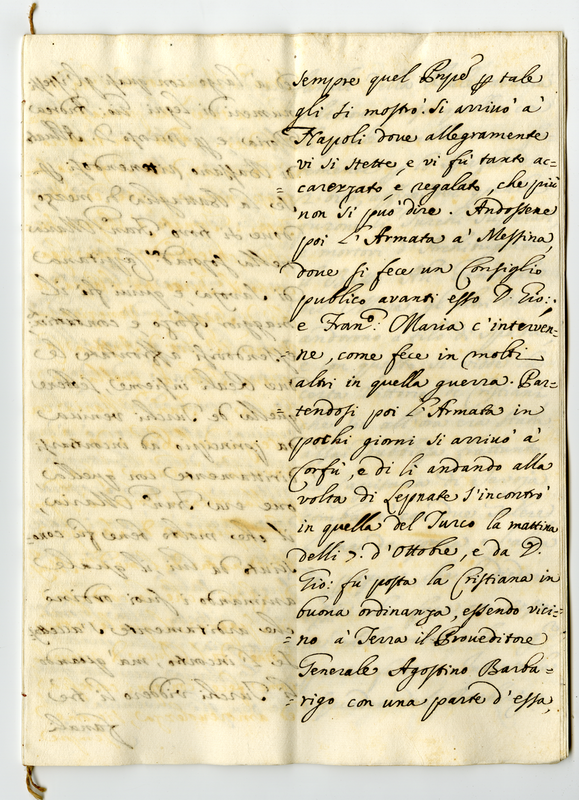 sempre quel Pnpe p tale
gli si mostrò. Si arrivò à
Napoli dove allegramente
vi si stette, e vi fù tanto ac=
=carezzato, e regalato, che più
non si può dire. Andossene
poi l'Armata à Messina,
dove si fece un Consiglio
publico avanti esso D. Gio:,
e Franᵒ: Maria c'interven=
=ne, come fece in molti
altri in quella guerra. Par=
=tendosi poi l'Armata in
pochi giorni si arrivò à
Corfù, e di li andando alla
volta di Lepnate s'incontrò
in quella del Turco la mattina
delli 7. d'Ottobre, e da D.
Gio: fù posta la Cristiana in
buona ordinanza, essendo vici=
=no à Terra il Proveditore
Generale Agostino Barba=
=rigo con una parte d'essa,